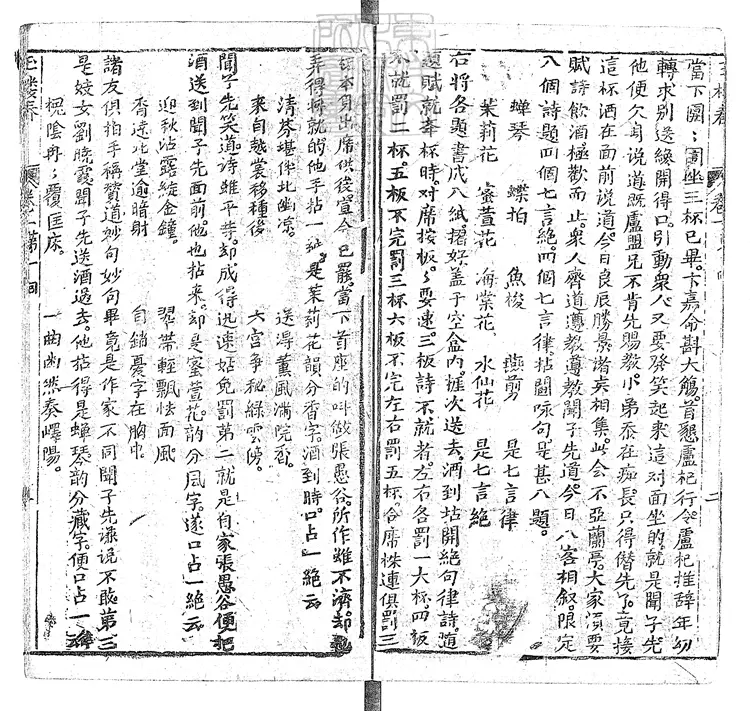 當下團團圍坐三杯已畢。卞嘉命斟大觴。首懇盧杞行令。盧杞推辭年幼
轉求別送緣開得口。引動衆人又要發笑起來這對面坐的。就是聞子先
他便欠身说道既盧盟兄不肯先賜教小弟忝在痴長。只得僭先了。竟接
這杯酒在面前说道。今日良辰勝景諸亥相集。此会不亞蘭亭。大家須要
賦詩飲酒極歡而止。衆人齊道遵教遵教聞子先道。今日八客相叙。限定
八個詩題四個七言絶。四個七言律。拈鬮咏句。是甚八題。
蟬琴 蝶拍 魚梭 燕剪 是七言律
茉莉花 蜜萱花 海棠花 水仙花 是七言絶
右將各題書成八紙。摺好盖于空盒内。挨次送去。酒到拈開絶句律詩随
題賦就每杯時。对席按板。板要速。三板詩不就者。左右各罰一大杯。四板
不就罰二杯。五板不完罰三杯六板不完左右罰五杯。合席株連俱罰三
玉楼春 卷一第一回
杯本身出席供役宣令已罷。當下首座的叫做張愚谷。所作雖不濟。却
弄得極就的他手拈一紙。是茉莉花韻分香字。酒到時。口占一絶云
清芬堪伴北幽凉。 送得薰風满院香。
來自越裳移種後 六宫争秘緑雲傍。
聞子先笑道。诗雖平芳。却成得迅速姑免罰第二就是自家張愚谷便把
酒送到聞子先面前他也拈来。却是蜜萱花韵分風字。遂口占一絶云
迎秋沾露綻金鐘。 翠带輕飘怯面風。
香遠北堂逾暗射 自銷憂字在胸中
諸友俱拍手稱賛道妙句妙句畢竟是作家不同聞子先谦说不敢第三
是妓女劉曉霞聞子先送酒過去。他拈得是蟬琴韵分藏字。便口占一律
槐陰冉冉覆匡床。 一曲幽然奏嶧陽。